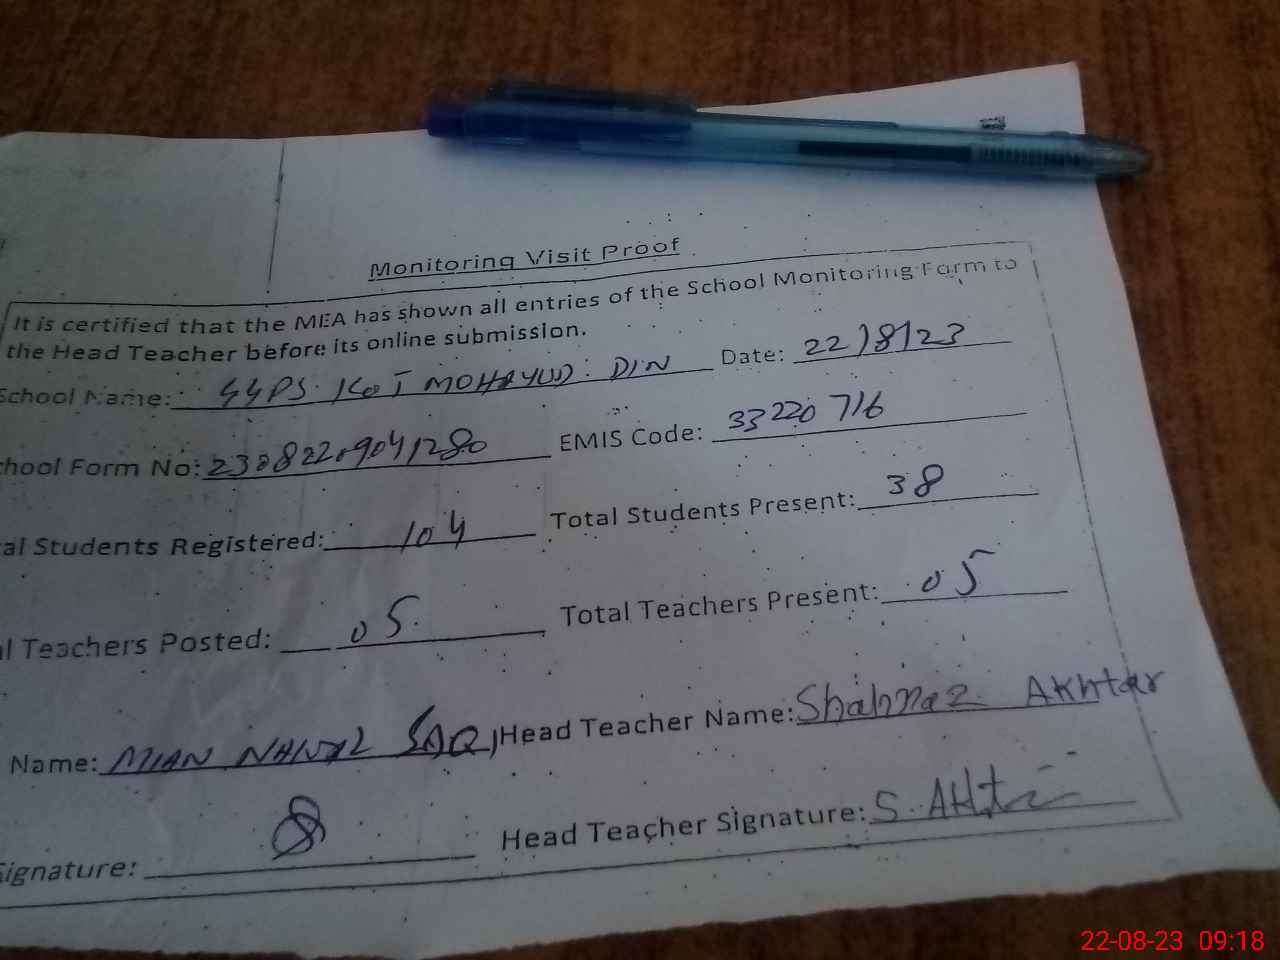 Monitoring Visit Proof
It is certified that the MEA has shown all entries of the School Monitoring Form to
the Head Teacher before its online submission.
School Name: GGPS KOT MOHAYUD DIN Date: 22/8/23
chool Form No: 23082209041280 EMIS Code: 33220716
al Students Registered: 104 Total Students Present: 38
l Teachers Posted: 05 Total Teachers Present: 05
Name: MIAN Head Teacher Name: Shahnaz Akhtar
Signature: Head Teacher Signature: S. Akhtar
22-08-23 09:18